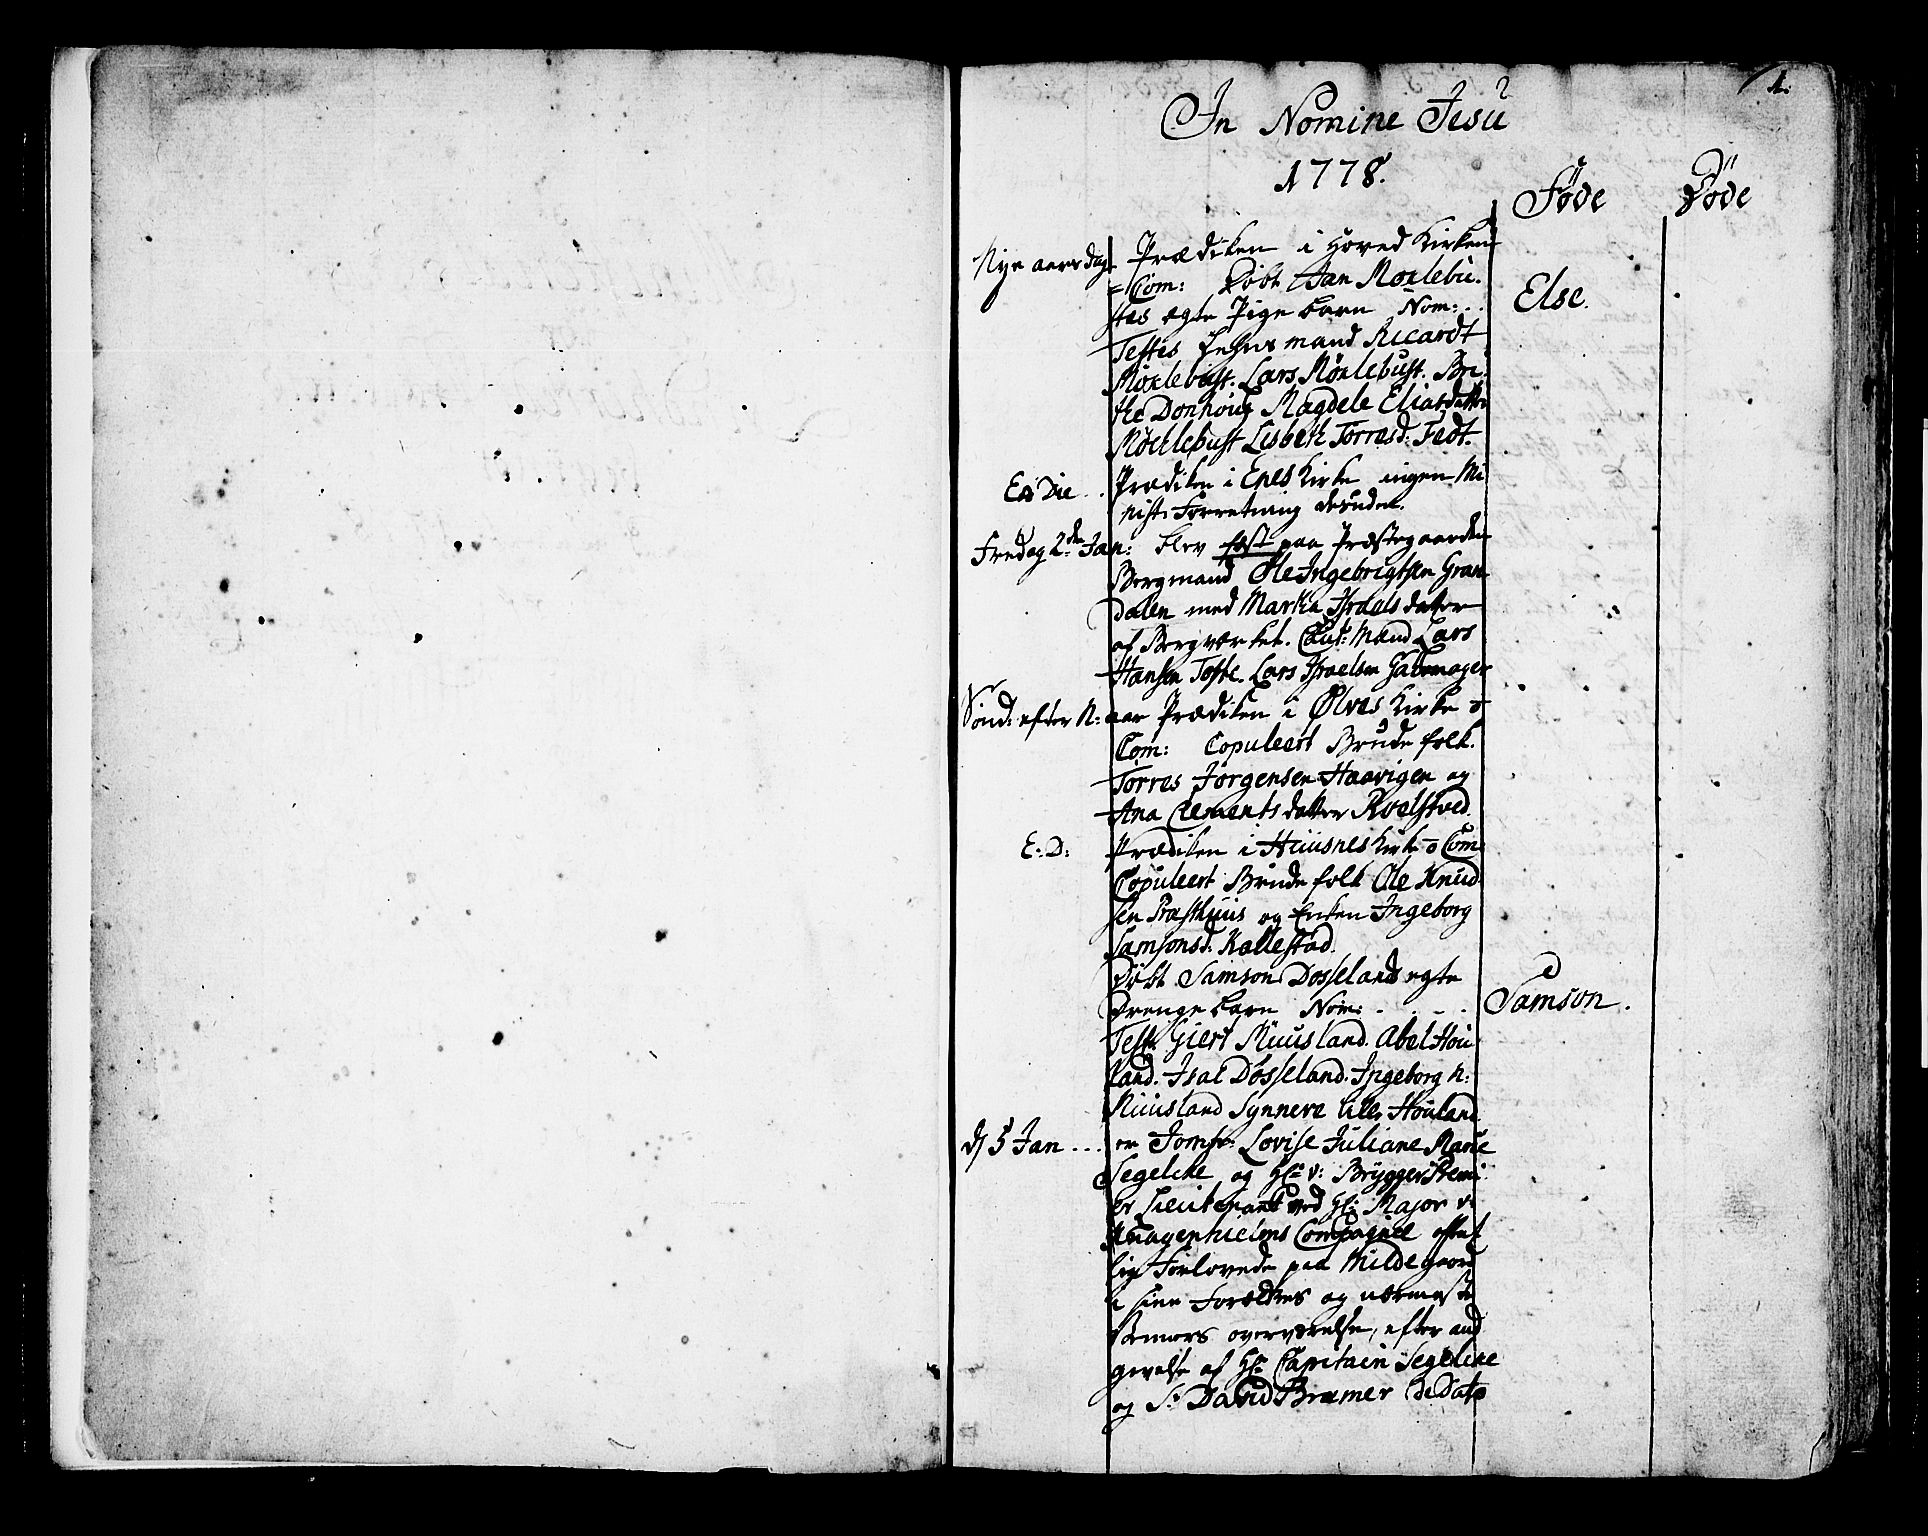 1.
In Nomine Jesu
1778.
Føde Døde
Nye aarsdag Prædiken i Hoved Kirken
= Com: Døbt Jan Moxlebu-
stes ægte Pige barn Nom: .. Else.
Testes Lehnsmand Ricardt
Moxlebust. Lars Møxlebust. Bri-
the Donhoug Magdele Eliasdatter
Møchlebust Lisbeth Torresd: Tedt.
E: Die .. Prædiken i Enes Kirke ingen Mi-
nist: Forretning desuden.
Fredag 2den Jan: blev fæst paa Præstegaarden
Bergmand Ole Ingebrigtsen Gran-
dalen med Martha Israels datter
af Bergværket. Caut: Mænd Lars
Hansen Tofte. Lars Israelsen
Sønd: efter N: aar Prædiken i Ølves Kirke o
Com: Copuleert Brude folk.
Torres Jørgensen Haavigen og
Ana Clements datter Roelstved
E: D: Prædiken i Huusnes Kirke o Com
Copuleert Brude folk Ole Knud-
sen Præsthuus og Enken Ingeborg
Samsonsd: Kallestad.
Døbt Samson Dosselands ægte
Drenge barn Nom: . . . . Samson.
Test: Giert Muusland. Abel Hou-
land. Isac Dosseland. Ingeborg N:
Muusland Synneve Houland
d 5 Jan ... er Jomfr: Lovise Juliane Marie
Segelche og Hr: v: Brygger Premi-
er Lieutenant ved Hr: Major v:
Knagenhielms Compagnie offent-
lig Forlovede paa Milde gaard
i sine Forældres og nærmeste
Venners overværelse, efter and-
givelse af Hr: Capitain Segelcke
og Sr: David Bramer de Dato